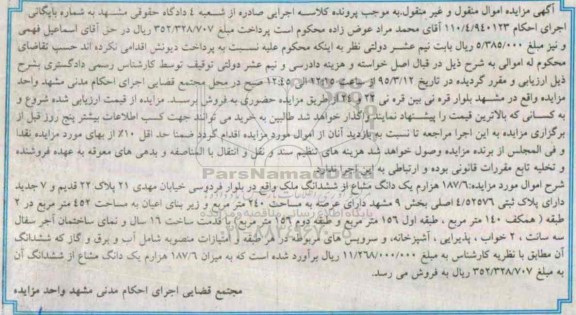 آگهی مزایده اموال منقول و غیر منقول.به موجب پرونده کلاسه اجرایی صادره از شعبه ٤ دادگاه حقوقی مشهد به شماره بایگانی
اجرای احکام ١١٠/٤/٩٤٠١٢٣ آقای محمد مراد عوض زاده محکوم است پرداخت مبلغ ٣٥٢/٣٢٨/٧٠٧ ریال در حق آقای اسماعیل فهمی
و نیز مبلغ ٥/٣٨٥/٠٠٠ ریال بابت نیم عشر دولتی نظر به اینکه محکوم علیه نسبت به پرداخت دیونش اقدامی نکرده اند حسب تقاضای
محکوم له اموالی به شرح ذیل در قبال اصل خواسته و هزینه دادرسی و نیم عشر دولتی توقیف توسط کارشناس رسمی دادگستری بشرح
ذیل ارزیابی و مقرر گردیده در تاریخ ٩٥/٣/١٢ از ساعت ١٢:١٥ الی ١٢:٤٥ صبح در محل مجتمع قضایی اجرای احکام مدنی مشهد واحد
مزایده واقع در مشهد بلوار قره نی بین قره نی ٢٢ و ٢٤ از طریق مزایده حضوری به فروش برسد. مزایده از قیمت ارزیابی شده شروع و
به کسانی که بالاترین قیمت را پیشنهاد نمایند واگذار خواهد شد طالبین به خرید می توانند جهت کسب اطلاعات بیشتر پنج روز قبل از
برگزاری مزایده به این اجرا مراجعه تا نسبت به بازدید آنان از اموال مورد مزایده اقدام گردد ضمنا حد اقل ١٠٪ از بهای مورد مزایده نقدا
و فی المجلس از برنده مزایده وصول خواهد شد هزینه های تنظیم سند و نقل و انتقال با المناصفه و بدهی های معوقه به عهده فروشنده
و تخلیه تابع مقررات قانونی بوده و ارتباطی به این اجرا ندارد
شرح اموال مورد مزایده:١٨٧/٦ هزارم یک دانگ مشاع از ششدانگ ملک واقع در بلوار فردوسی خیابان مهدی ٢١ پلاک ٢٢ قدیم و ٧ جدید
دارای پلاک ثبتی ٤/٥٢٥٧٦ اصلی بخش ٩ مشهد دارای عرصه به مساحت ٢٤٠ متر مربع و زیر بنای اعیان به مساحت ٤٥٢ متر مربع در ٢
طبقه ( همکف ١٤٠ متر مربع ، طبقه اول ١٥٦ متر مربع و طبقه دوم ١٥٦ متر مربع ) با قدمت ساخت ١٦ سال و نمای ساختمان آجر سفال
سه سانت ، ٢ خواب ، پذیرایی ، آشپزخانه، و سرویس های مربوطه در هر طبقه و امتیازات منصوبه شامل آب و برق و گاز که ششدانگ
آن مطابق با نظریه کارشناس به مبلغ ١١/٢٦٨/٠٠٠/٠٠٠ ریال برآورد شده است که به میزان ١٨٧/٦ هزارم یک دانگ مشاع از ششدانگ آن
به مبلغ ٣٥٢/٣٢٨/٧٠٧ ریال به فروش می رسد.
مجتمع قضایی اجرای احکام مدنی مشهد واحد مزایده
ParsNamadData